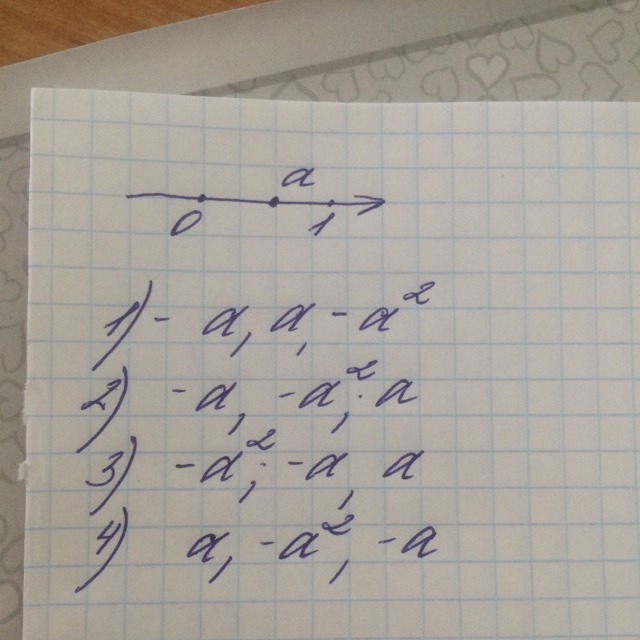 a
0 1
1) - a, a, - a²
2) - a, - a², a
3) - a², - a, a
4) a, - a², - a